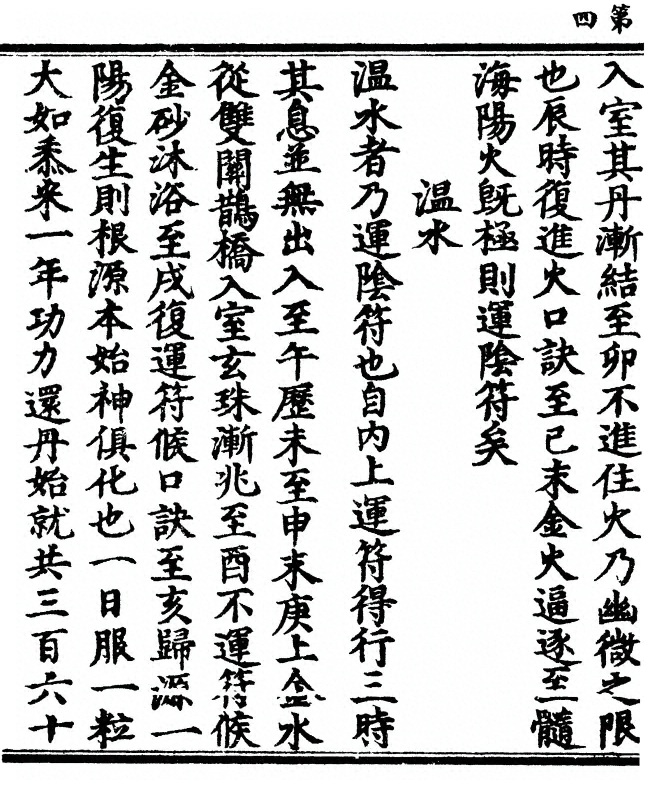 第四
入室其丹漸結至卯不進住火乃幽微之限
也辰時復進火口訣至巳末金火逼逐至髓
海陽火旣極則運陰符矣
温水
温水者乃運陰符也自內上運符得行三時
其息並無出入至午歷未至申末庚上金水
從雙關鵲橋入室玄珠漸兆至酉不運符候
金砂沐浴至戌復運符候口訣至亥歸源一
陽復生則根源本始神俱化也一日服一粒
大如黍米一年功力還丹始就共三百六十